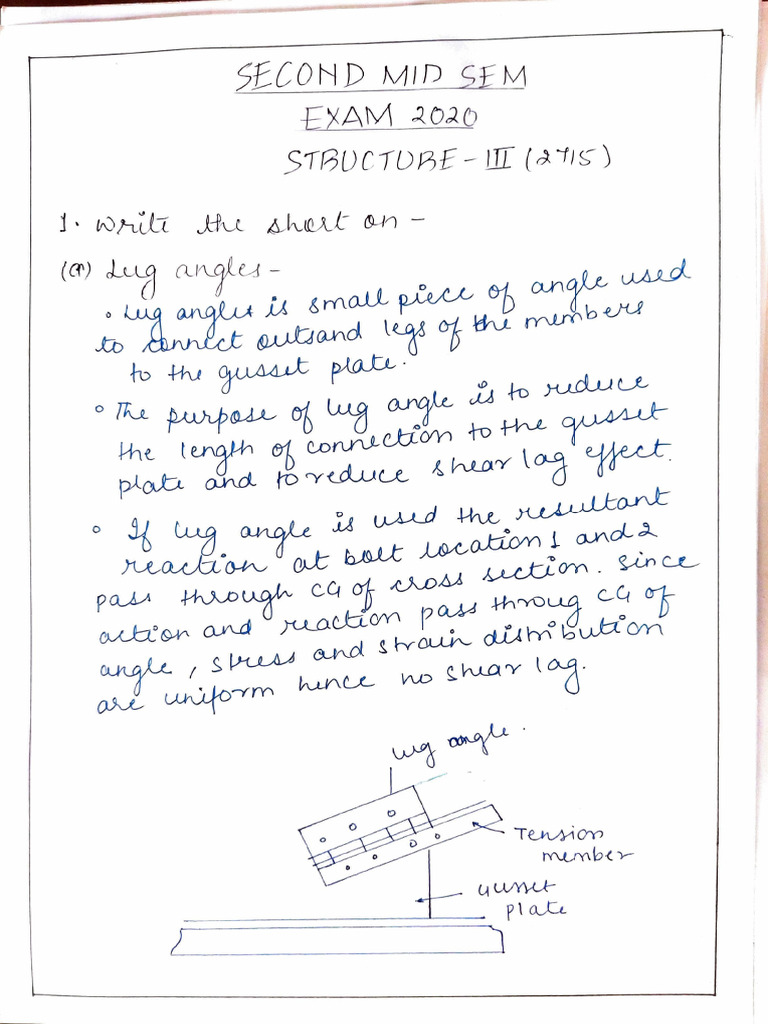 SECOND MID SEM
EXAM 2020
STRUCTURE - III (2715)
1. Write the short on -
(a) Lug angles -
• Lug angles is small piece of angle used
to connect outsand legs of the members
to the gusset plate.
◦ The purpose of lug angle is to reduce
the length of connection to the gusset
plate and to reduce shear lag effect.
◦ If lug angle is used the resultant
reaction at bolt location 1 and 2
pass through CG of cross section. Since
action and reaction pass throug CG of
angle, stress and strain distribution
are uniform hence no shear lag.
lug angle.
Tension
member
Gusset
plate